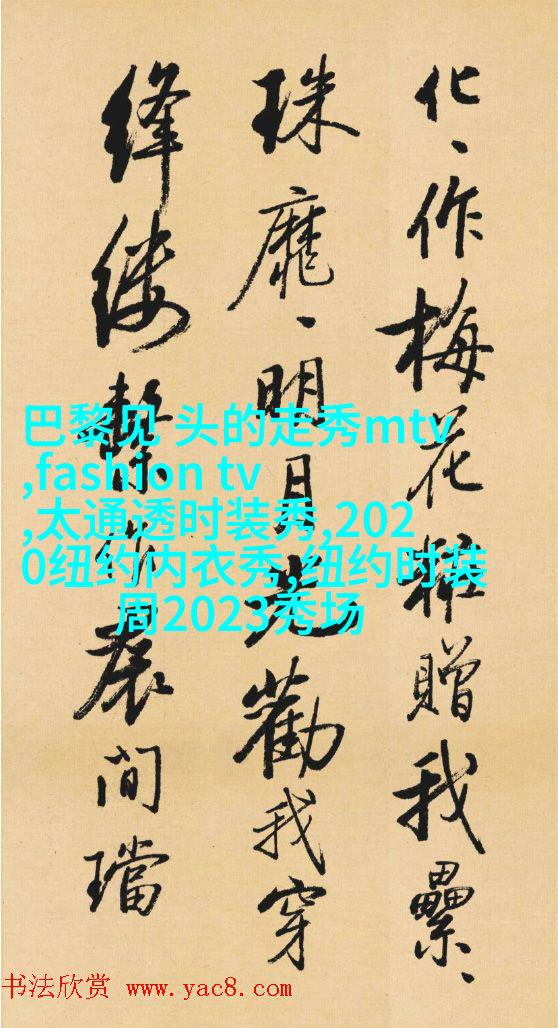 化、作梅花粧贈我纍、
珠靡、明月光勸我穿
絳縷繫作裠间璫
巴黎见 头的走秀mtv
,fashion tv
,太通透时装秀,202
0纽约内衣秀,纽约时装
周2023秀场
书法欣赏 www.yac8.com